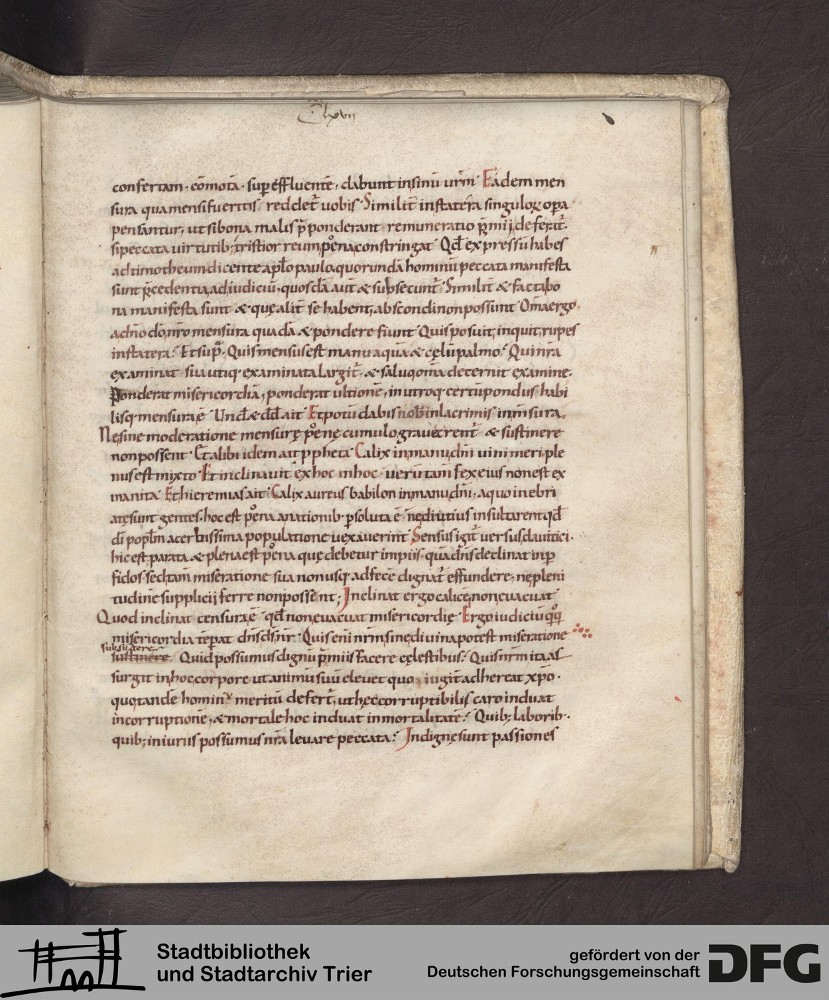 confertam · cōmotā · sup effluentē, dabunt in sinū urm̄ Eadem men
sura qua mensi fueritis reddet͛ vobis · Similit͛ in statera singuloꝝ opa
pensantur, ut si bona malis p̄ponderant remuneratio p̄mii deferat͛.
si peccata virtutib; tristior reum pęna constringat · Qd̄ expressū habes
ad timotheum dicente aplo paulo. quorundā hominū peccata manifesta
sunt p̄cedentia ad iudiciū. quosdā aut̄ & subsecunt͛. Similit͛ & facta bo
na manifesta sunt & quę alit͛ se habent, abscondi non possunt Om̄a ergo
ad n̄o mensura quadā & pondere fiunt · Quis posuit, inquit, rupes
in statera? Et sup̄. Quis mensus est manu aquā & cęlū palmo? Qui nr̄a
examinat sua utiq; examinata largit͛. & saluq; om̄a decernit examine.
Ponderat misericordiā, ponderat ultionē, in utroq; certū pondus habi
lisq; mensura ē Und̄ & dd̄ ait Et potū dabis nob in lacrimis in m̄sura.
Ne sine moderatione mensurę pęnę cumulo gravarent͛ & sustinere
non possent · Et alibi idem ait p̄pheta Calix in manu dn̄i vini meri ple
nus est mixto Et inclinavit ex hoc in hoc · verū tam̄ fex eius non est ex
inanita Et hieremias ait Calix aureus babilon in manu dn̄i, a quo inebri
atę sunt gentes. hoc est pęna a nationib · psoluta ē ne diutius insultarent qd̄
dī poplm̄ acerbissima populatione vexaverint Sensus igit͛ versus davitici
hic est parata & plena est pęna quę debetur impiis. quā dn̄s declinat in p
fidos. sed tam̄ miseratione sua non usq; ad fęcē dignat͛ effundere, ne pleni
tudinē supplicii ferre non possent; Inclinat ergo calicē non evacuat
Quod inclinat censura ē · qd̄ non evacuat misericordię Ergo iudiciū q̄q;
misericordia tēpat dn̄s ds̄ nr̄. Quis enī nrm̄ sine divina potest miseratione
subsistere
sustinere Quid possumus dignū p̄miis facere cęlestibus? Quis nrm̄ ita as
surgit in hoc corpore ut animū suū elevet quo iugit͛ adhereat xp̄o ·
quo tandē hominū meritū defert͛, ut hęc corruptibilis caro induat
incorruptionē, & mortale hoc induat inmortalitatē? Quib; laborib ·
quib; iniuriis possumus nr̄a levare peccata? Indignę sunt passiones
Stadtbibliothek
und Stadtarchiv Trier
gefördert von der
Deutschen Forschungsgemeinschaft
DFG